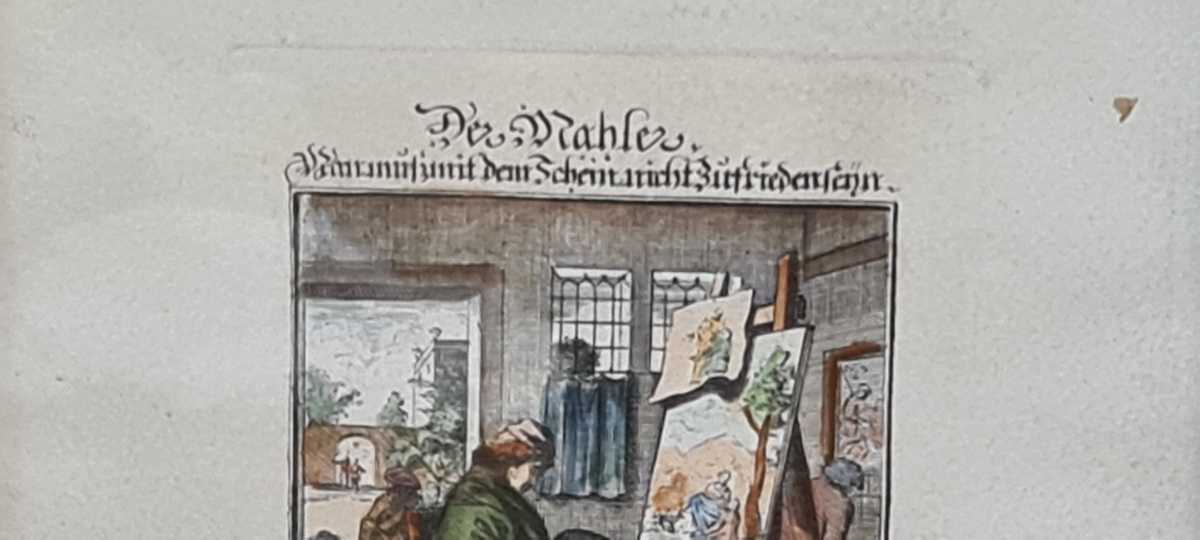 Der Mahler.
Man muß mit dem Schein nicht Zufrieden seÿn.